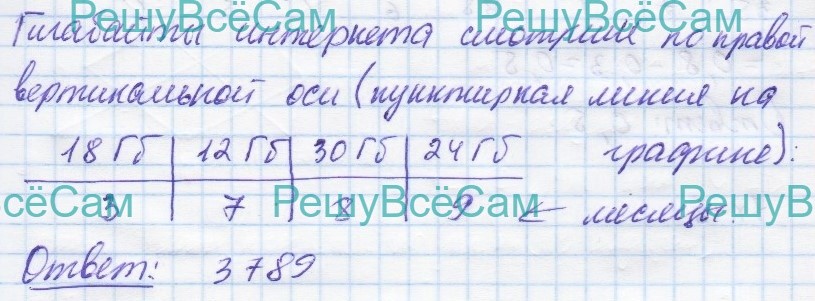 РешуВсёСам РешуВсёСам
Гигабайты интернета смотрим по правой
вертикальной оси (пунктирная линия на
18 Гб 12 Гб 30 Гб 24 Гб графике):
3 7 8 9 ← месяцы.
сёСам РешуВсёСам РешуВ
Ответ: 3789